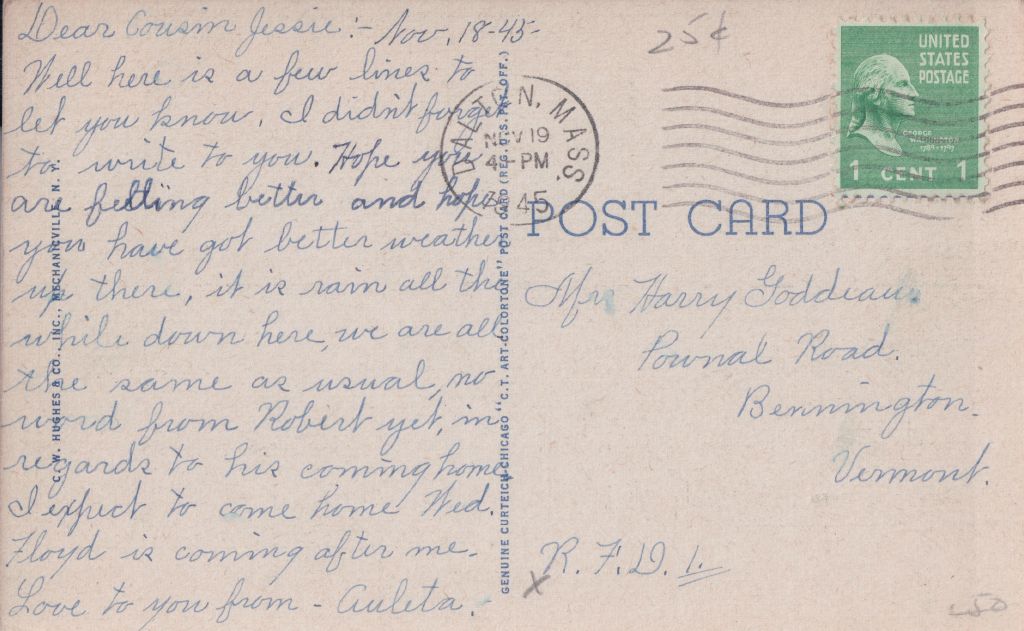 Dear Cousin Jessie:- Nov. 18-45-
Well here is a few lines to
let you know, I didn't forget
to write to you. Hope you
are feeling better and hope
you have got better weather
up there, it is rain all the
while down here, we are all
the same as usual, no
word from Robert yet, in
regards to his coming home
I expect to come home Wed.
Floyd is coming after me.
Love to you from - Auleta.
C. W. HUGHES & CO., INC., MECHANICVILLE, N. Y.
GENUINE CURTEICH-CHICAGO "C.T. ART-COLORTONE" POST CARD (REG. U.S. PAT. OFF.)
25¢
DALTON, MASS.
NOV 19
4 - PM
1945
UNITED
STATES
POSTAGE
GEORGE
WASHINGTON
1789-1797
1 CENT 1
POST CARD
Mrs Harry Goddeau.
Pownal Road.
Bennington.
Vermont.
R. F. D. 1.
X
50